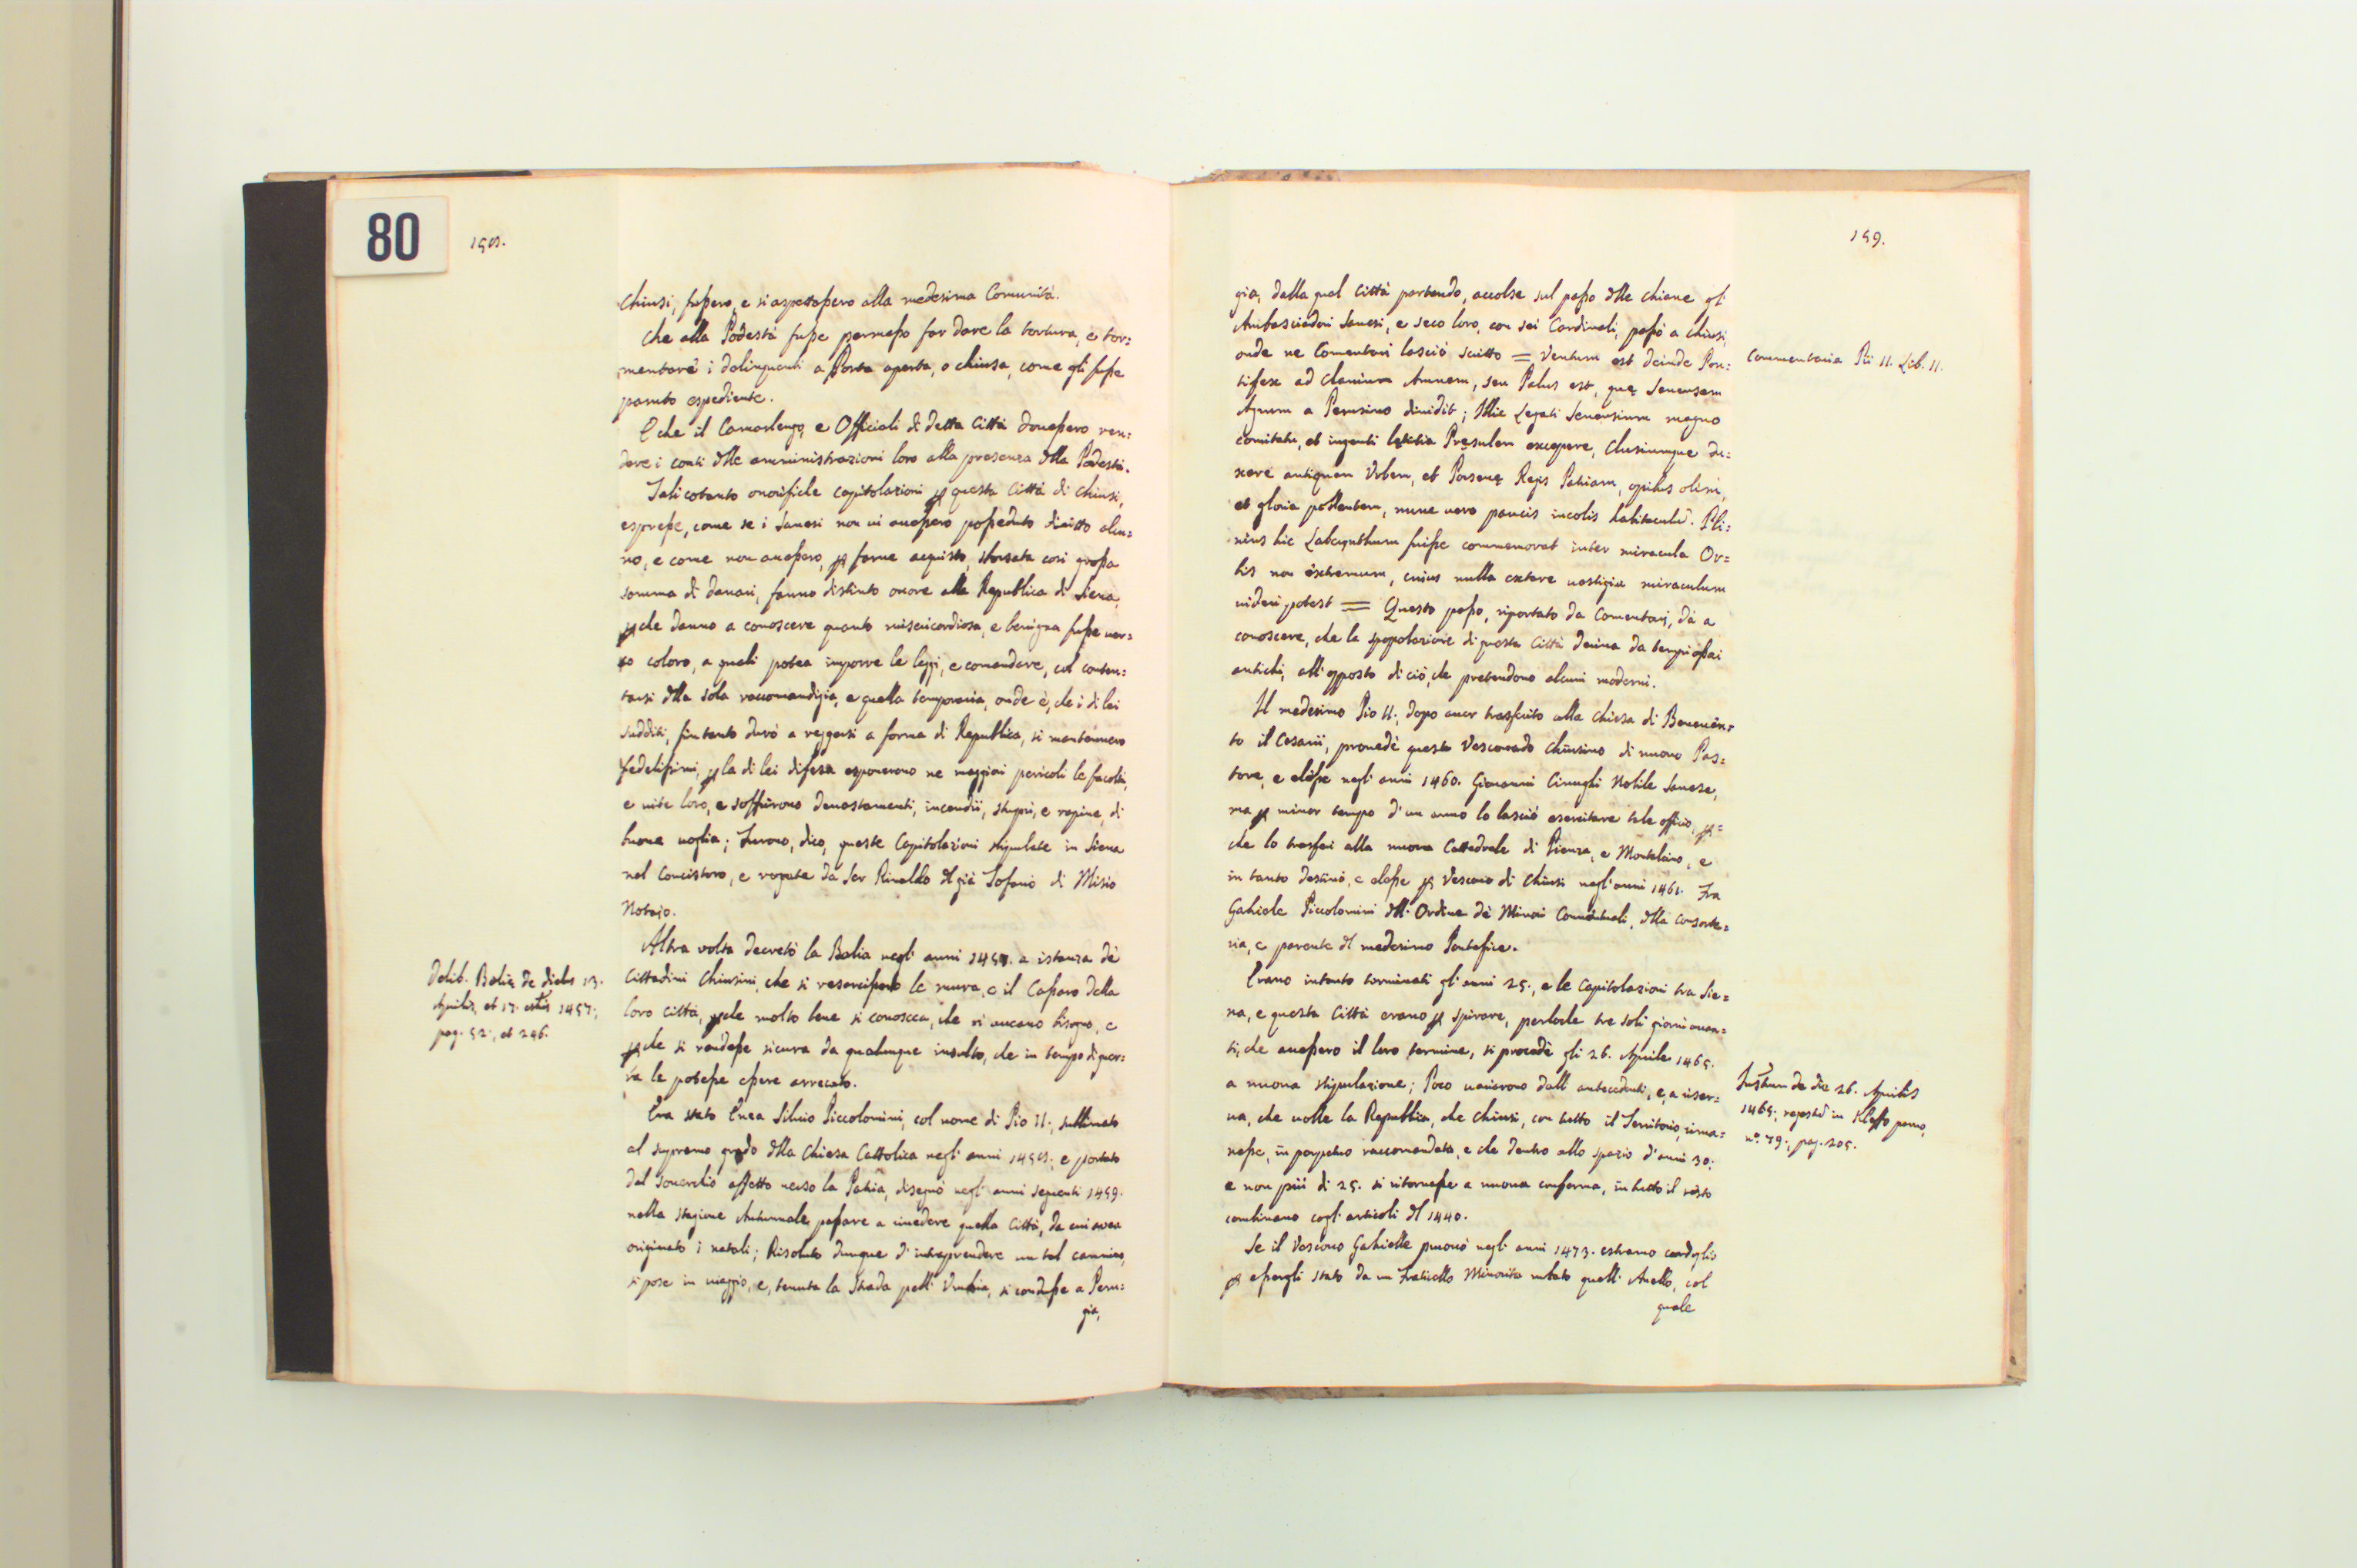 80
158.
Chiusi, fussero, e si aspettassero alla medesima Comunità.
Che alla Podestà fusse permesso far dare la tortura, e tor=
mentare i delinquenti a Porta aperta, o chiusa, come gli fusse
paruto espediente.
E che il Camarlengo, e Officiali di detta Città dovessero ren=
dere i conti dlle amministrazioni loro alla presenza dlla Podestà.
Tali cotanto onorifiche capitolazioni p questa Città di Chiusi,
espresse, come se i Sanesi non vi avessero posseduto diritto alcu=
no, e come non avessero, p farne acquisto, sborsata così grossa
somma di danari, fanno distinto onore alla Republica di Siena,
pche danno a conoscere quanto misericordiosa, e benigna fusse ver=
so coloro, a quali potea imporre le leggi, e comandare, col conten=
tarsi dlla sola raccomandigia, e quella temporaria, onde è, che i di lei
sudditi, fin tanto durò a reggersi a forma di Republica, si mantennero
fedelissimi, p la di lei difesa esposerono ne maggiori pericoli le facoltà,
e vite loro, e soffrirono devastamenti, incendii, stupri, e rapine, di
buona voglia; Furono, dico, queste Capitolazioni stipulate in Siena
nel Concistoro, e rogate da Ser Rinaldo dl già Tofano di Misio
Notajo.
Altra volta decretò la Balia negl' anni 1457. a istanza dè
Cittadini Chiusini, che si resarcissero le mura, e il Cassero della
loro Città, pche molto bene si conoscea, che vi aveano bisogno, e
pche si rendesse sicura da qualunque insulto, che in tempo di guer=
ra le potesse essere arrecato.
Delib. Balię de diebus 13.
Aprilis, et 17. 1457.,
pag. 52., et 246.
Era stato Enea Silvio Piccolomini, col nome di Pio II., sublimato
al supremo grado dlla Chiesa Cattolica negl' anni 1458. e portato
dal soverchio affetto verso la Patria, disegnò negl' anni seguenti 1459.
nella stagione Autunnale, passare a rivedere quella Città, da cui avea
originato i natali; Risoluto dunque d' intraprendere un tal camino,
si pose in viaggio, e, tenuta la Strada pell' Umbria, si condusse a Peru=
gia,
159.
gia, dalla qual Città partendo, accolse sul passo dlle Chiane gl'
Ambasciadori Sanesi, e seco loro, con sei Cardinali, passò a Chiusi,
onde ne Comentari lasciò scritto = Ventum est deinde Pon=
tifex ad Clanium Amnem, seu Palus est, quę Senensem
Agrum a Perusino dividit; Illic Legati Senensium magno
comitatu, et ingenti lętitia Pręsulem excepere, Clusiumque du=
xere antiquam Urbem, et Porsenę Regis Patriam, opibus olim,
et gloria pollentem, nunc vero paucis incolis habitatum. Pli=
nius hic Labęrynthum fuisse commemorat inter miracula Or=
bis non extremum, cuius nulla extare vestigia miraculum
videri potest = Questo passo, riportato da Comentarj, dà a
conoscere, che la spopolazione di questa Città deriva da tempi assai
antichi, all' opposto di ciò, che pretendono alcuni moderni.
Commentaria Pii II. Lib. II.
Il medesimo Pio II., dopo aver trasferito alla Chiesa di Beneven=
to il Cesarii, provedè questo Vescovado Chiusino di nuovo Pas=
tore, e elesse negl' anni 1460. Giovanni Cinughi Nobile Sanese,
ma p minor tempo d' un anno lo lasciò esercitare tale officio, p=
che lo trasferì alla nuova Cattedrale di Pienza, e Montalcino, e
in tanto destinò, e elesse p Vescovo di Chiusi negl' anni 1461. Fra
Gabriele Piccolomini dll' Ordine dè Minori Conventuali, dlla consorte=
ria, e parente dl medesimo Pontefice.
Erano intanto terminati gl' anni 25., e le Capitolazioni tra Sie=
na, e questa Città erano p spirare, perloche tre soli giorni avan=
ti, che avessero il loro termine, si procedè gli 26. Aprile 1465.
a nuova stipulazione; Poco variarono dall' antecedenti, e, a riser=
va, che volle la Republica, che Chiusi, con tutto il Territorio, rima=
nesse, in perpetuo raccomandata, e che dentro allo spazio d' anni 30.
e non più di 25. si ritornasse a nuova conferma, in tutto il resto
combinano cogl' articoli dl 1440.
Instrum de die 26. Aprilis
1465., in Kleffo
n.º 79., pag. 205.
Se il Vescovo Gabrielle provò negl' anni 1473. estremo cordoglio
p essergli stato da un Fraticello Minorita rubato quell' Anello, col
quale